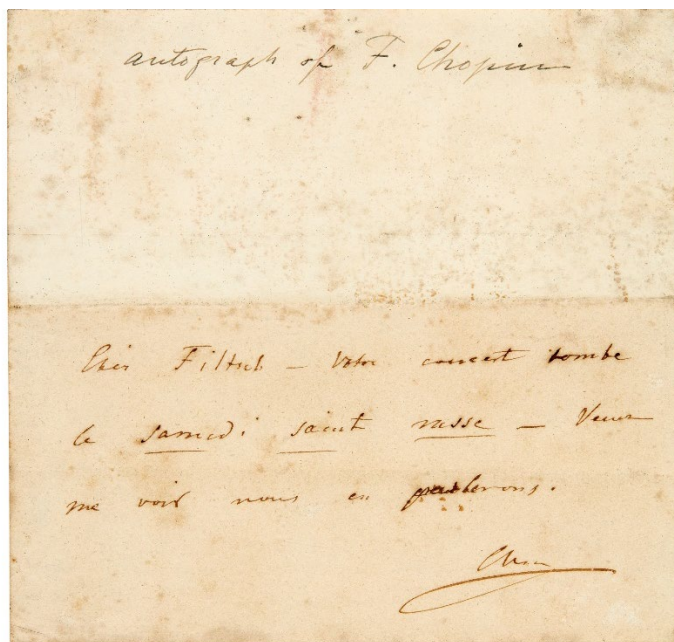 autograph of F. Chopin
Cher Filtsch – Votre concert tombe
le samedi saint russe – Venez
me voir nous en parlerons.
Chop